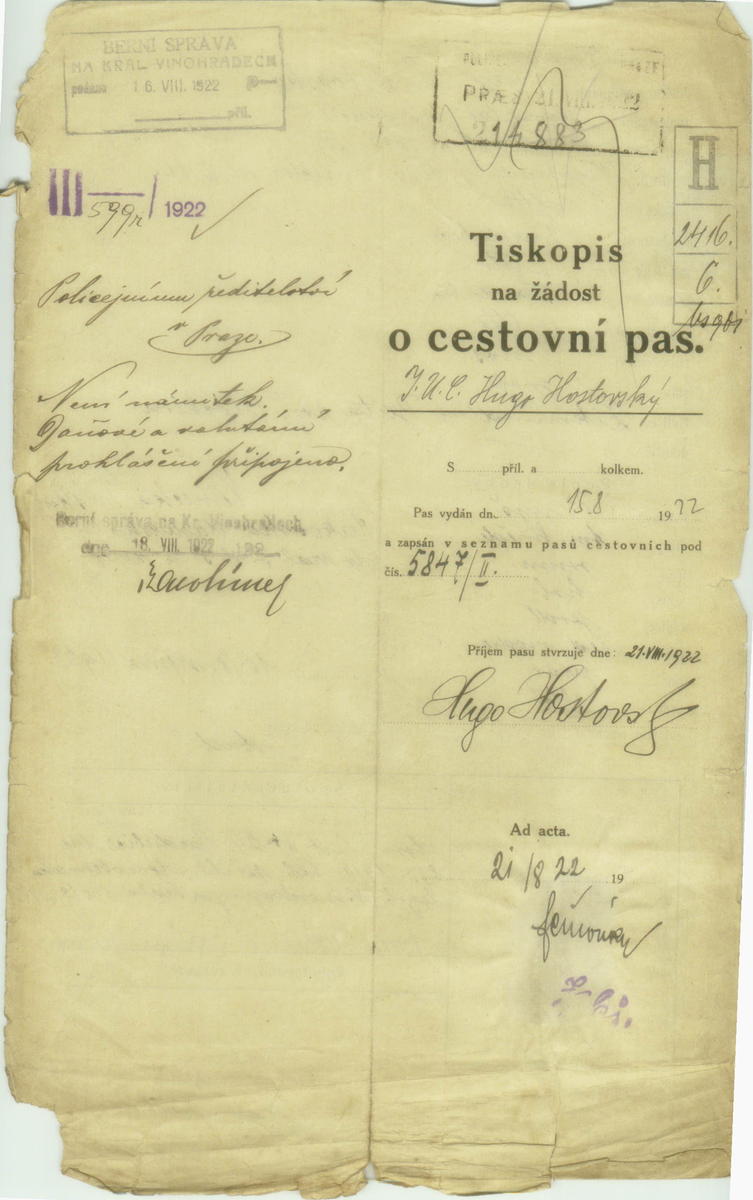 BERNÍ SPRÁVA
NA KRÁL. VINOHRADECH
podáno 16. VIII. 1922
příl.
III 599/r / 1922
Policejnímu ředitelství
v Praze.
Není námitek.
Daňové a valutární
prohlášení připojeno.
Berní správa na Kr. Vinohradech,
dne 18. VIII. 1922 192
PRA 21. VIII. 1922
214883
H
2416.
6.
Tiskopis
na žádost
o cestovní pas.
J.U.C. Hugo Hostovský
S příl. a kolkem.
Pas vydán dne 15.8 1922
a zapsán v seznamu pasů cestovních pod
čís. 5847/II.
Příjem pasu stvrzuje dne: 21.VIII.1922
Hugo Hostovský
Ad acta.
21/8 22 19